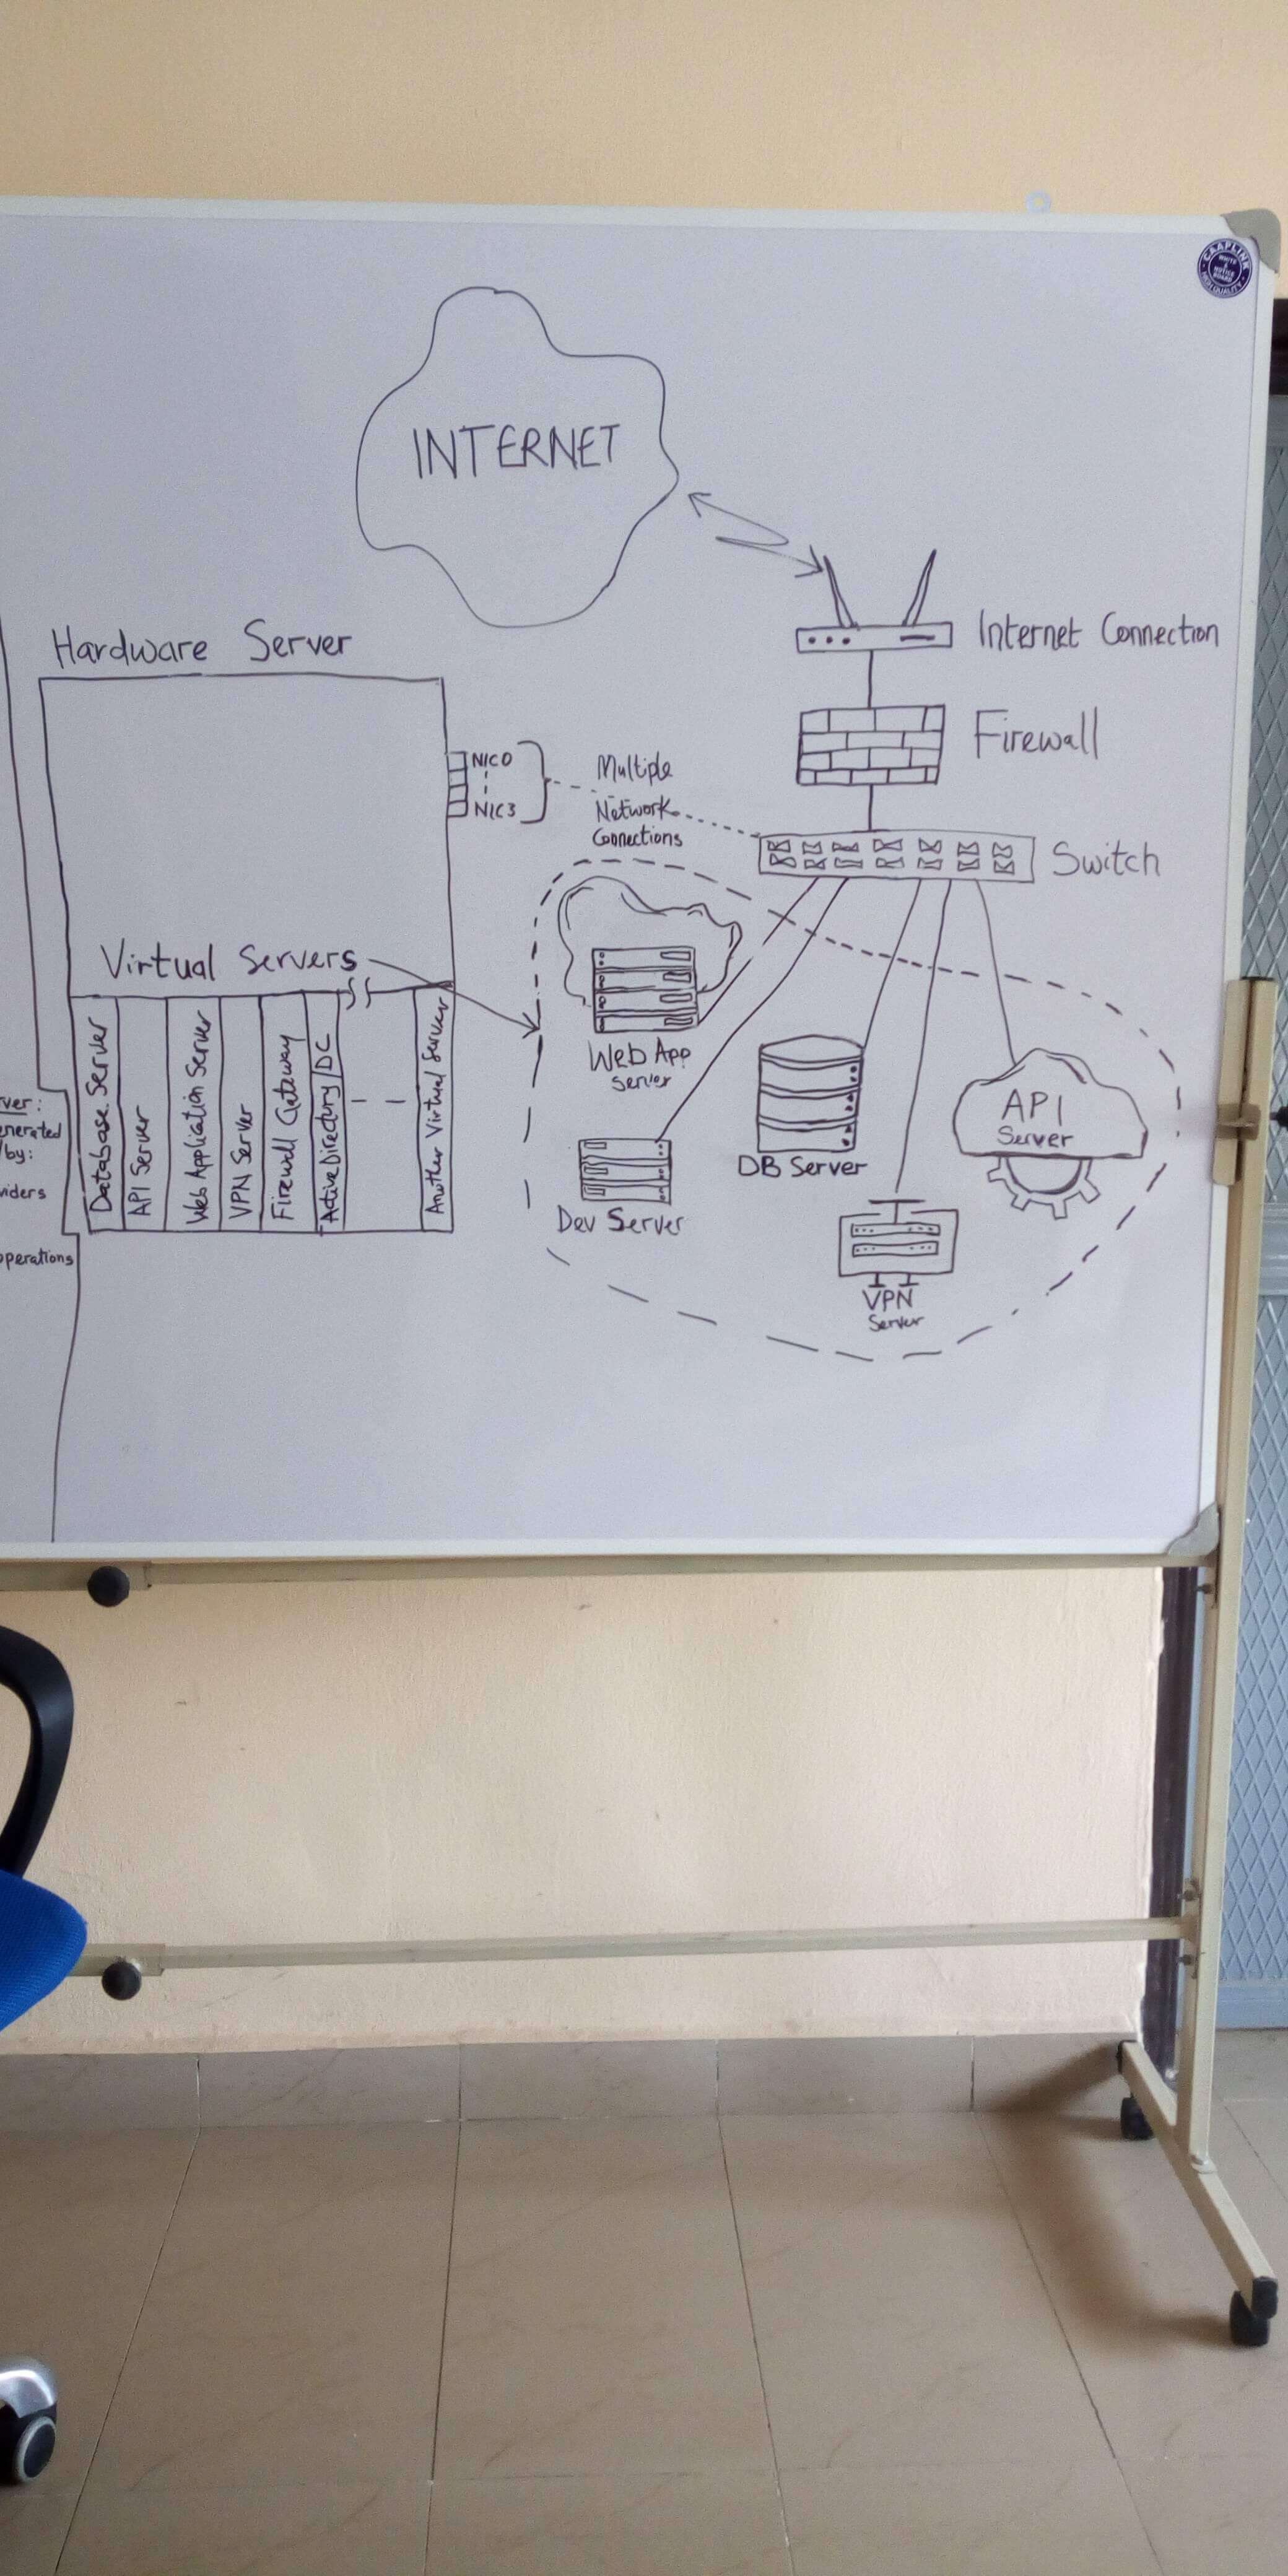 CAAPLINK
WHITE
&
NOTICE
BOARD
HIGH QUALITY
INTERNET
Internet Connection
Hardware Server
Firewall
NIC0
NIC3
Multiple
Network
Connections
Switch
Virtual Servers
Database Server
API Server
Web Application Server
VPN Server
Firewall Gateway
Active Directory/DC
Another Virtual Server
Web App
Server
DB Server
API
Server
Dev Server
VPN
Server
ver:
enerated
/by:
viders
operations